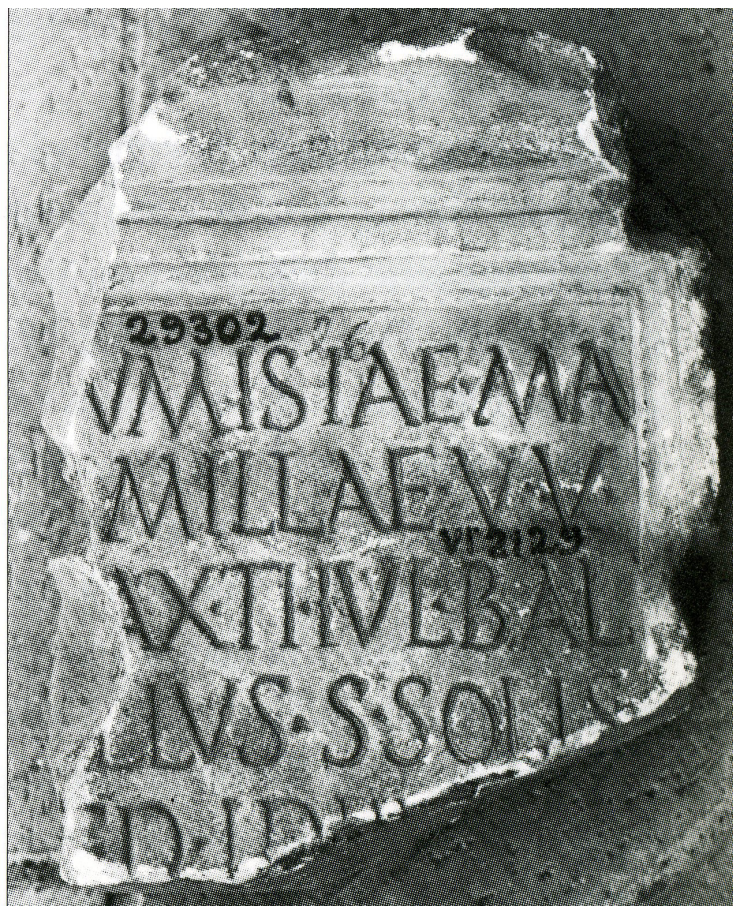 29302 26
VMISIAE·MA
MILLAE·V·V
VI 2129
AX·TI·IVL·BAL
LLVS·S·SOLIS
ED·ID